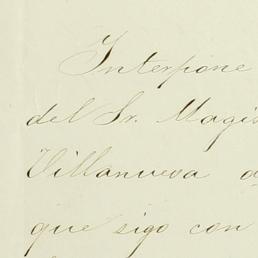 Interpone
del Sr. Magis
Villanueva
que sigo con